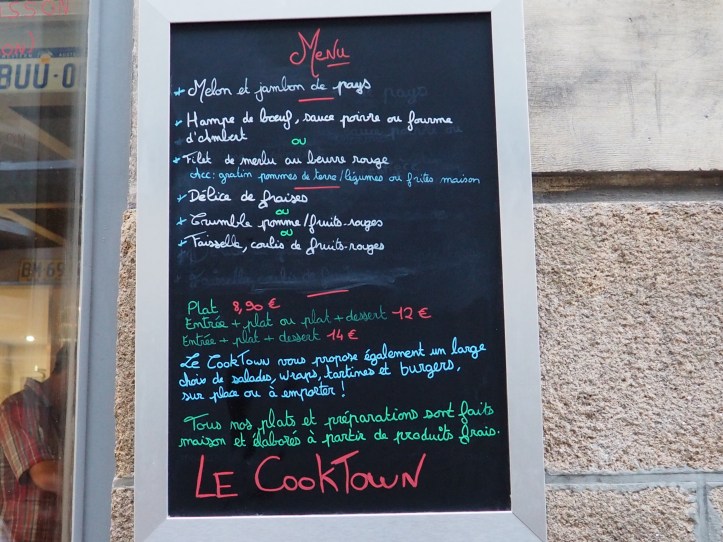 SSION
BUU-0
BM 69
MENU
+ Melon et jambon de pays
+ Hampe de bœuf, sauce poivre ou fourme
d'Ambert
ou
+ Filet de merlu au beurre rouge
Acc: gratin pommes de terre/légumes ou frites maison
+ Délice de fraises
ou
+ Crumble pomme/fruits-rouges
ou
+ Faisselle, coulis de fruits-rouges
Plat 8,90 €
Entrée + plat ou plat + dessert 12 €
Entrée + plat + dessert 14 €
Le CookTown vous propose également un large
choix de salades, wraps, tartines et burgers,
sur place ou à emporter !
Tous nos plats et préparations sont faits
maison et élaborés à partir de produits frais.
LE COOKTOWN